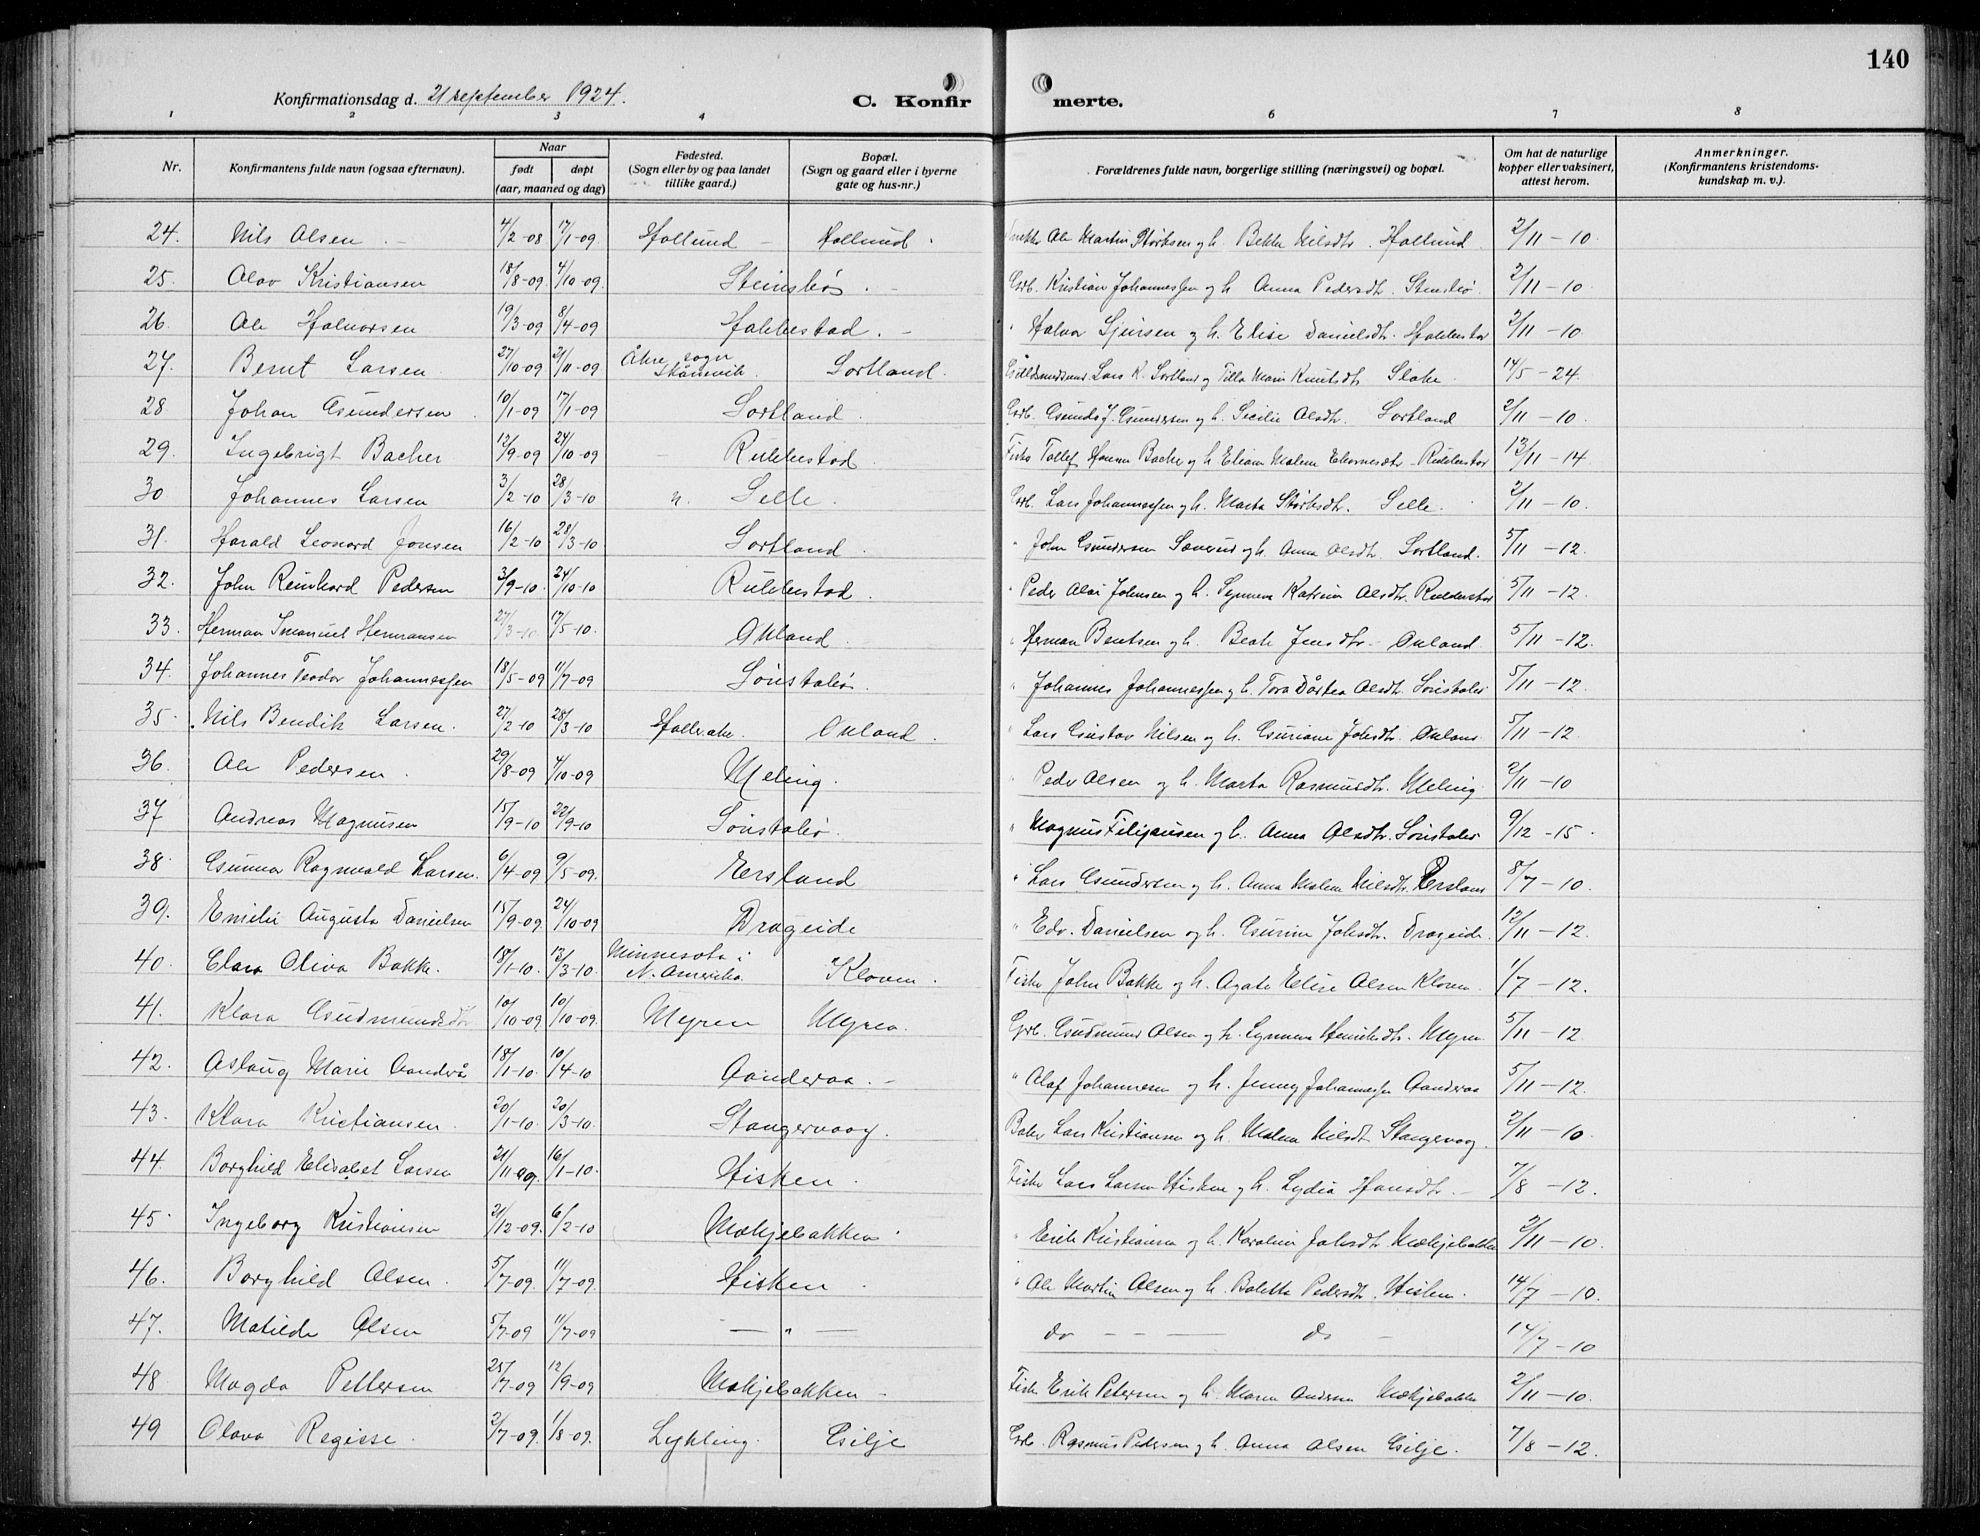 140
Konfirmationsdag d. 21 september 1924.
C. Konfirmerte.
1 2 3 4 6 7 8
Nr.
Konfirmantens fulde navn (ogsaa efternavn).
Naar
født døpt
(aar, maaned og dag)
Fødested.
(Sogn eller by og paa landet
tillike gaard.)
Bopæl.
(Sogn og gaard eller i byerne
gate og hus-nr.)
Forældrenes fulde navn, borgerlige stilling (næringsvei) og bopæl.
Om hat de naturlige
kopper eller vaksinert,
attest herom.
Anmerkninger.
(Konfirmantens kristendoms-
kundskap m. v.).
24. Nils Olsen 4/2-08 17/1-09 Hollund Hollund Ole Martin Størksen g h. Nilsdtr. Hollund 2/11-10
25. Olav Kristiansen 18/8-09 4/10-09 Steinsbø Grb. Kristian Johannessen g h. Anna Pedersdtr. Stensbø 2/11-10
26. Ole Halvorsen 19/3-09 8/4-09 Habbestad " Halvor Sjursen g h. Elise Danielsdtr. Habbestad 2/11-10
27. Bernt Larsen 27/10-09 21/11-09 Åkre sogn Skånevik. Sortland. Lars K. Sortland g Tilla Marie Knutsdtr 14/5-24
28 Johan Gsundersen 10/1-09 17/1-09 Sortland Grb. J. Gsundersen g h. Sicilie Olsdtr. Sortland 2/11-10
29. Ingebrigt Backer 12/9-09 24/10-09 Rubbestad Fisk. Tollef Backer g h. Malene Rubbestad 13/11-14
30 Johannes Larsen 3/2-10 28/3-10 n. Selle Grb. Lars Johannessen g h. Marta Størksdtr. Selle. 2/11-10
31. Harald Leonard Jonsen 16/2-10 28/3-10 Sortland " John Gsundersen g h. Anna Olsdtr. Sortland. 5/11-12
32. John Reinhard Pedersen 3/9-10 24/10-10 Rubbestad " Peder Olai Johnsen g h. Synneva Katrine Olsdtr. Rubbestad 5/11-12
33. Herman Imanuel Hermansen 27/3-10 17/5-10 Økland " Herman Bentsen g h. Beate Jensdtr. Økland 5/11-12.
34. Johannes Teodor Johannessen 18/5-09 11/7-09 Sønstabø " Johannes Johannessen g h. Tora Dårtea Olsdtr. Sønstabø 5/11-12
35. Nils Bendik Larsen. 27/2-10 28/3-10 Hollerake. Økland. " Lars Gustav Nilsen g h. Guriane Johsdtr. Økland 5/11-12
36. Ole Pedersen 29/8-09 4/10-09 Meling. " Peder Olsen g h. Marta Rasmusdtr. Meling 2/11-10
37 Andreas Magnusen 15/9-10 22/9-10 Sønstabø. " Magnus g h. Anna Olsdtr. Sønstabø 9/12-15
38. Gunnar Ragnvald Larsen. 6/4-09 9/5-09. Eersland " Lars Gsundersen g h. Anna Malene Nilsdtr. 8/7-10.
39. Emilie Augusta Danielsen 15/9-09 24/10-09 Drageide " Edv. Danielsen g h. Gurine Johsdtr. Drageide. 12/11-12.
40. Clara Oliva Bakke. 18/1-10. 13/3-10. Minnesota i N. Amerika Kloven. Fisk. John Bakke g h. Agate Elise Olsen Kloven 1/7-12.
41. Klara Gudmundsdtr 10/10-09 10/10-09. Myren Myren. Grb. Gudmund Olsen g h. Synneva Myren 5/11-12.
42. Aslaug Marie Aanderå 18/1-10. 10/4-10 Aanderaa. " Olaf Johannesen g h. Jenny Johannessen Aanderaa 5/11-12.
43. Klara Kristiansen 20/1-10. 20/3-10. Stangervaag. Baker Lars Kristiansen g h. Malene Nilsdt Stangervaag. 2/11-10
44 Borghild Elisabet Larsen 21/11-09. 16/1-10. Hisken. Fisk. Lars Larsen Hisken g h. Lydia Hansdtr. 7/8-12.
45. Ingeborg Kristiansen 21/12-09. 6/2-10 Mækjebakken " Erik Kristiansen g h. Karoline Johsdtr. Mækjebakken 2/11-10.
46. Borghild Olsen. 5/7-09. 11/7-09. Hisken " Ole Martin Olsen g h. Boletta Pedersdtr. Hisken. 14/7-10.
47. Matilde Olsen 5/7-09 11/7-09 — " — do — do 14/7-10
48 Magda Pettersen 25/7-09 12/9-09 Mækjebakken Fisk. Erik Petersen g h. Maren Andersen Mækjebakken 2/11-10.
49 Olava Regisse. 2/7-09. 1/8-09. Lykling. Gsilje Grb. Rasmus Pedersen g h. Anna Olsen Gsilje. 7/8-12.